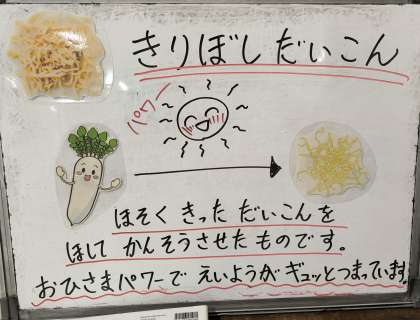 きりぼしだいこん
パワー
ほそく きった だいこんを
ほして かんそうさせた ものです。
おひさまパワーで えいようが ギュッとつまっています。